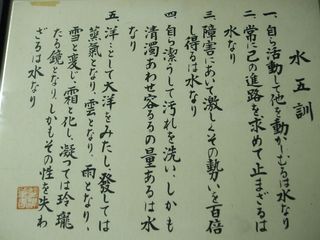 水五訓
一、自ら活動して他を動かしむるは水なり
二、常に己の進路を求めて止まざるは
水なり
三、障害にあいて激しくその勢いを百倍
し得るは水なり
四、自ら潔うして汚れを洗い、しかも
清濁あわせ容るるの量あるは水
なり
五、洋々として大洋をみたし、發しては
蒸氣となり、雲となり、雨となり、
雪と変じ、霜と化し、凝っては玲瓏
たる鏡となり、しかもその性を失わ
ざるは水なり